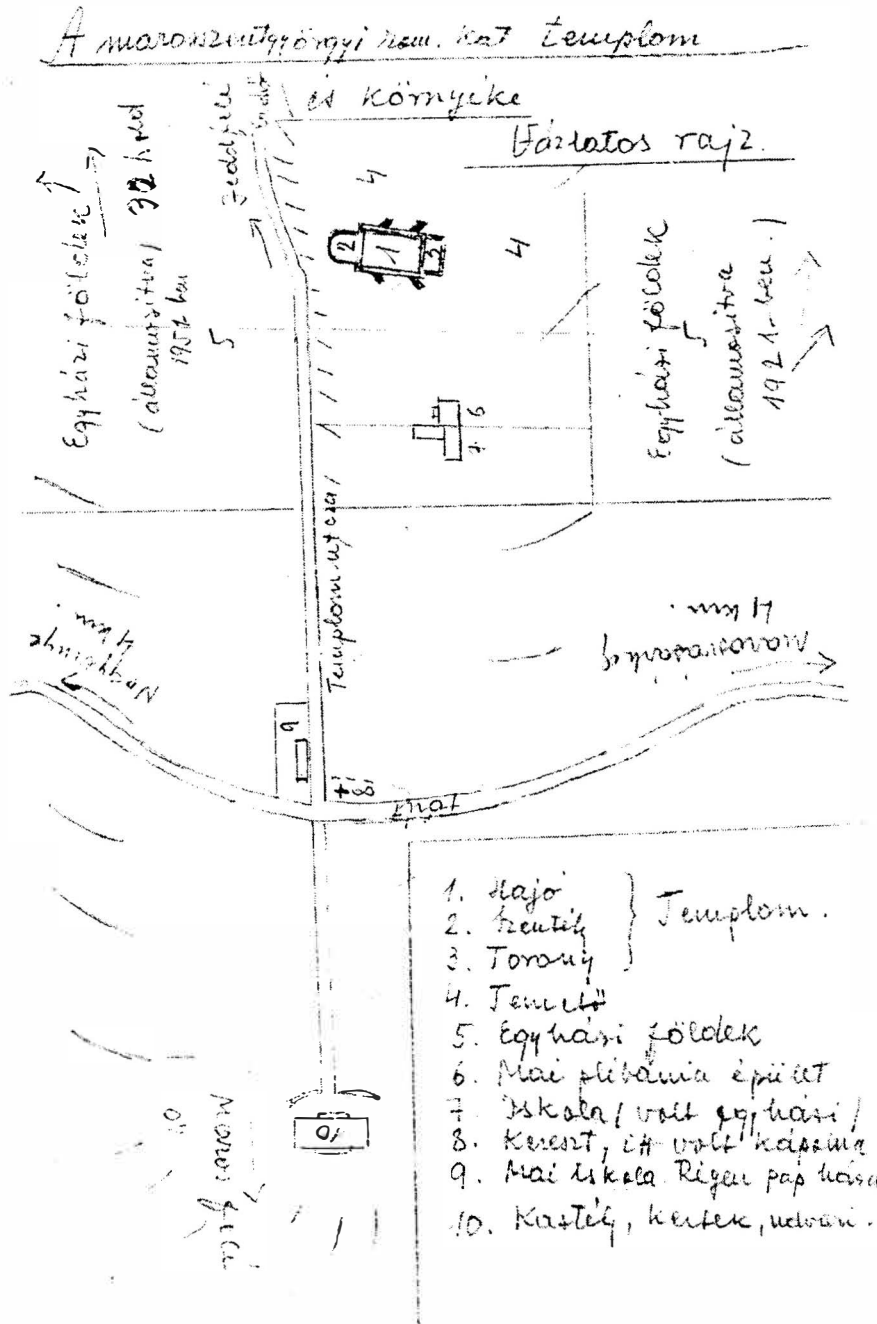 A marosszentgyörgyi rom. kat templom
és környéke
Vázlatos rajz.
Egyházi földek
32 hold
(államosítva,
5
Jeddfelé
4
2
1
3
4
Egyházi földek
5
(államosítva
1921-ben.)
6
7
Templom utcza
Nagyernye
4 km.
Marosvásárhely
4 km.
9
8
Főút
10
Maros felé
1. Hajó
2. Szentély
3. Torony
Templom.
4. Temető
5. Egyházi földek
6. Mai plébánia épület
7. Iskola / volt egyházi /
8. Kereszt, itt volt kápolna
9. Mai Iskola Régen pap háza
10. Kastély, kertek, udvari.